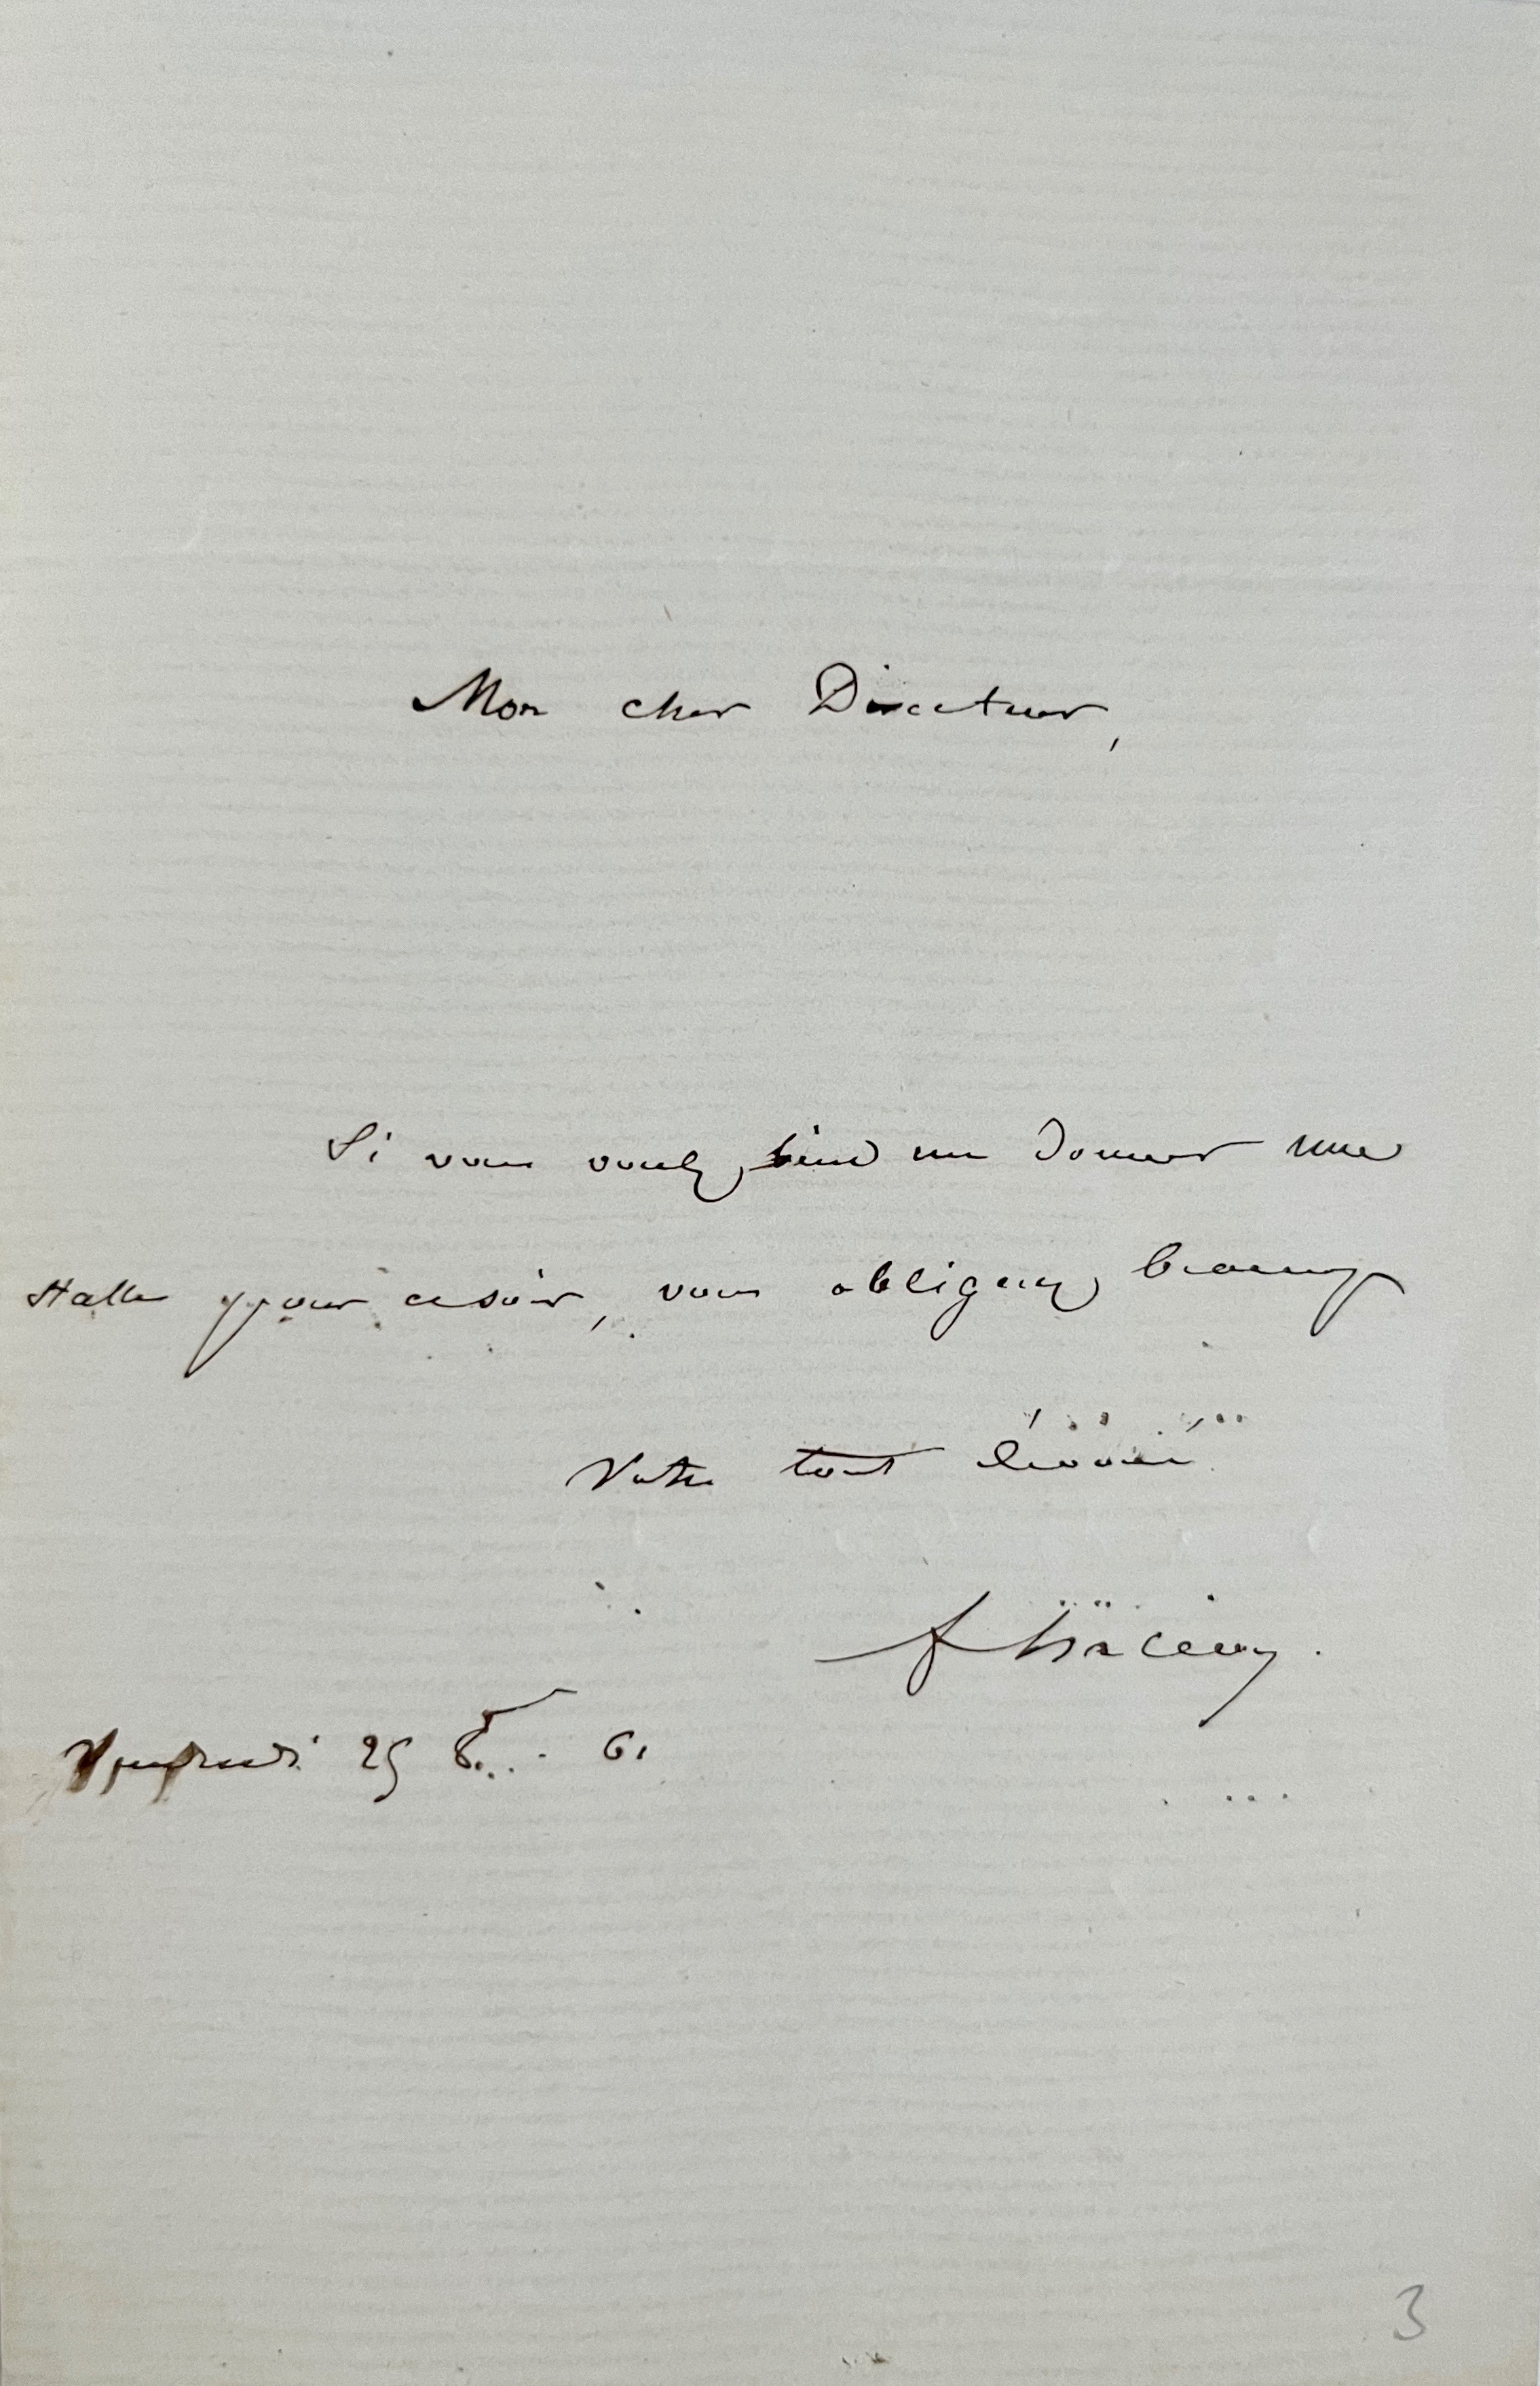 Mon cher Directeur,
Si vous voulez bien me donner une
stalle pour ce soir, vous obligerez beaucoup
Votre tout dévoué
Vendredi 25 8bre 61
3